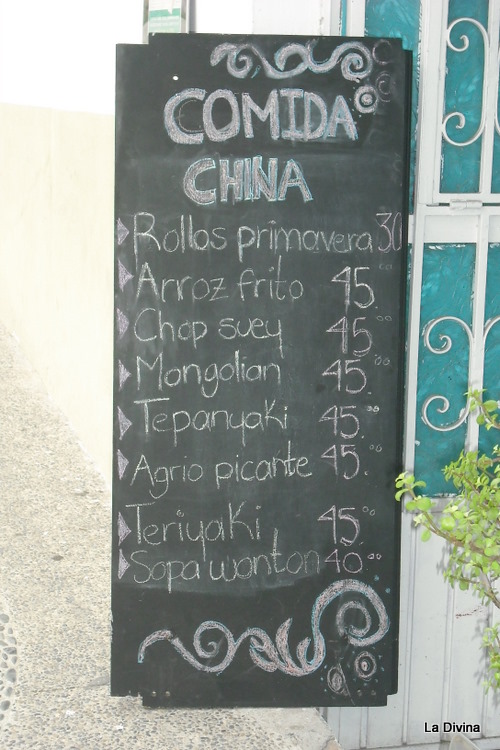 COMIDA
CHINA
Rollos primavera 30
Arroz frito 45.00
Chop suey 45.00
Mongolian 45.00
Tepanyaki 45.00
Agrio picante 45.00
Teriyaki 45.00
Sopa wonton 40.00
La Divina